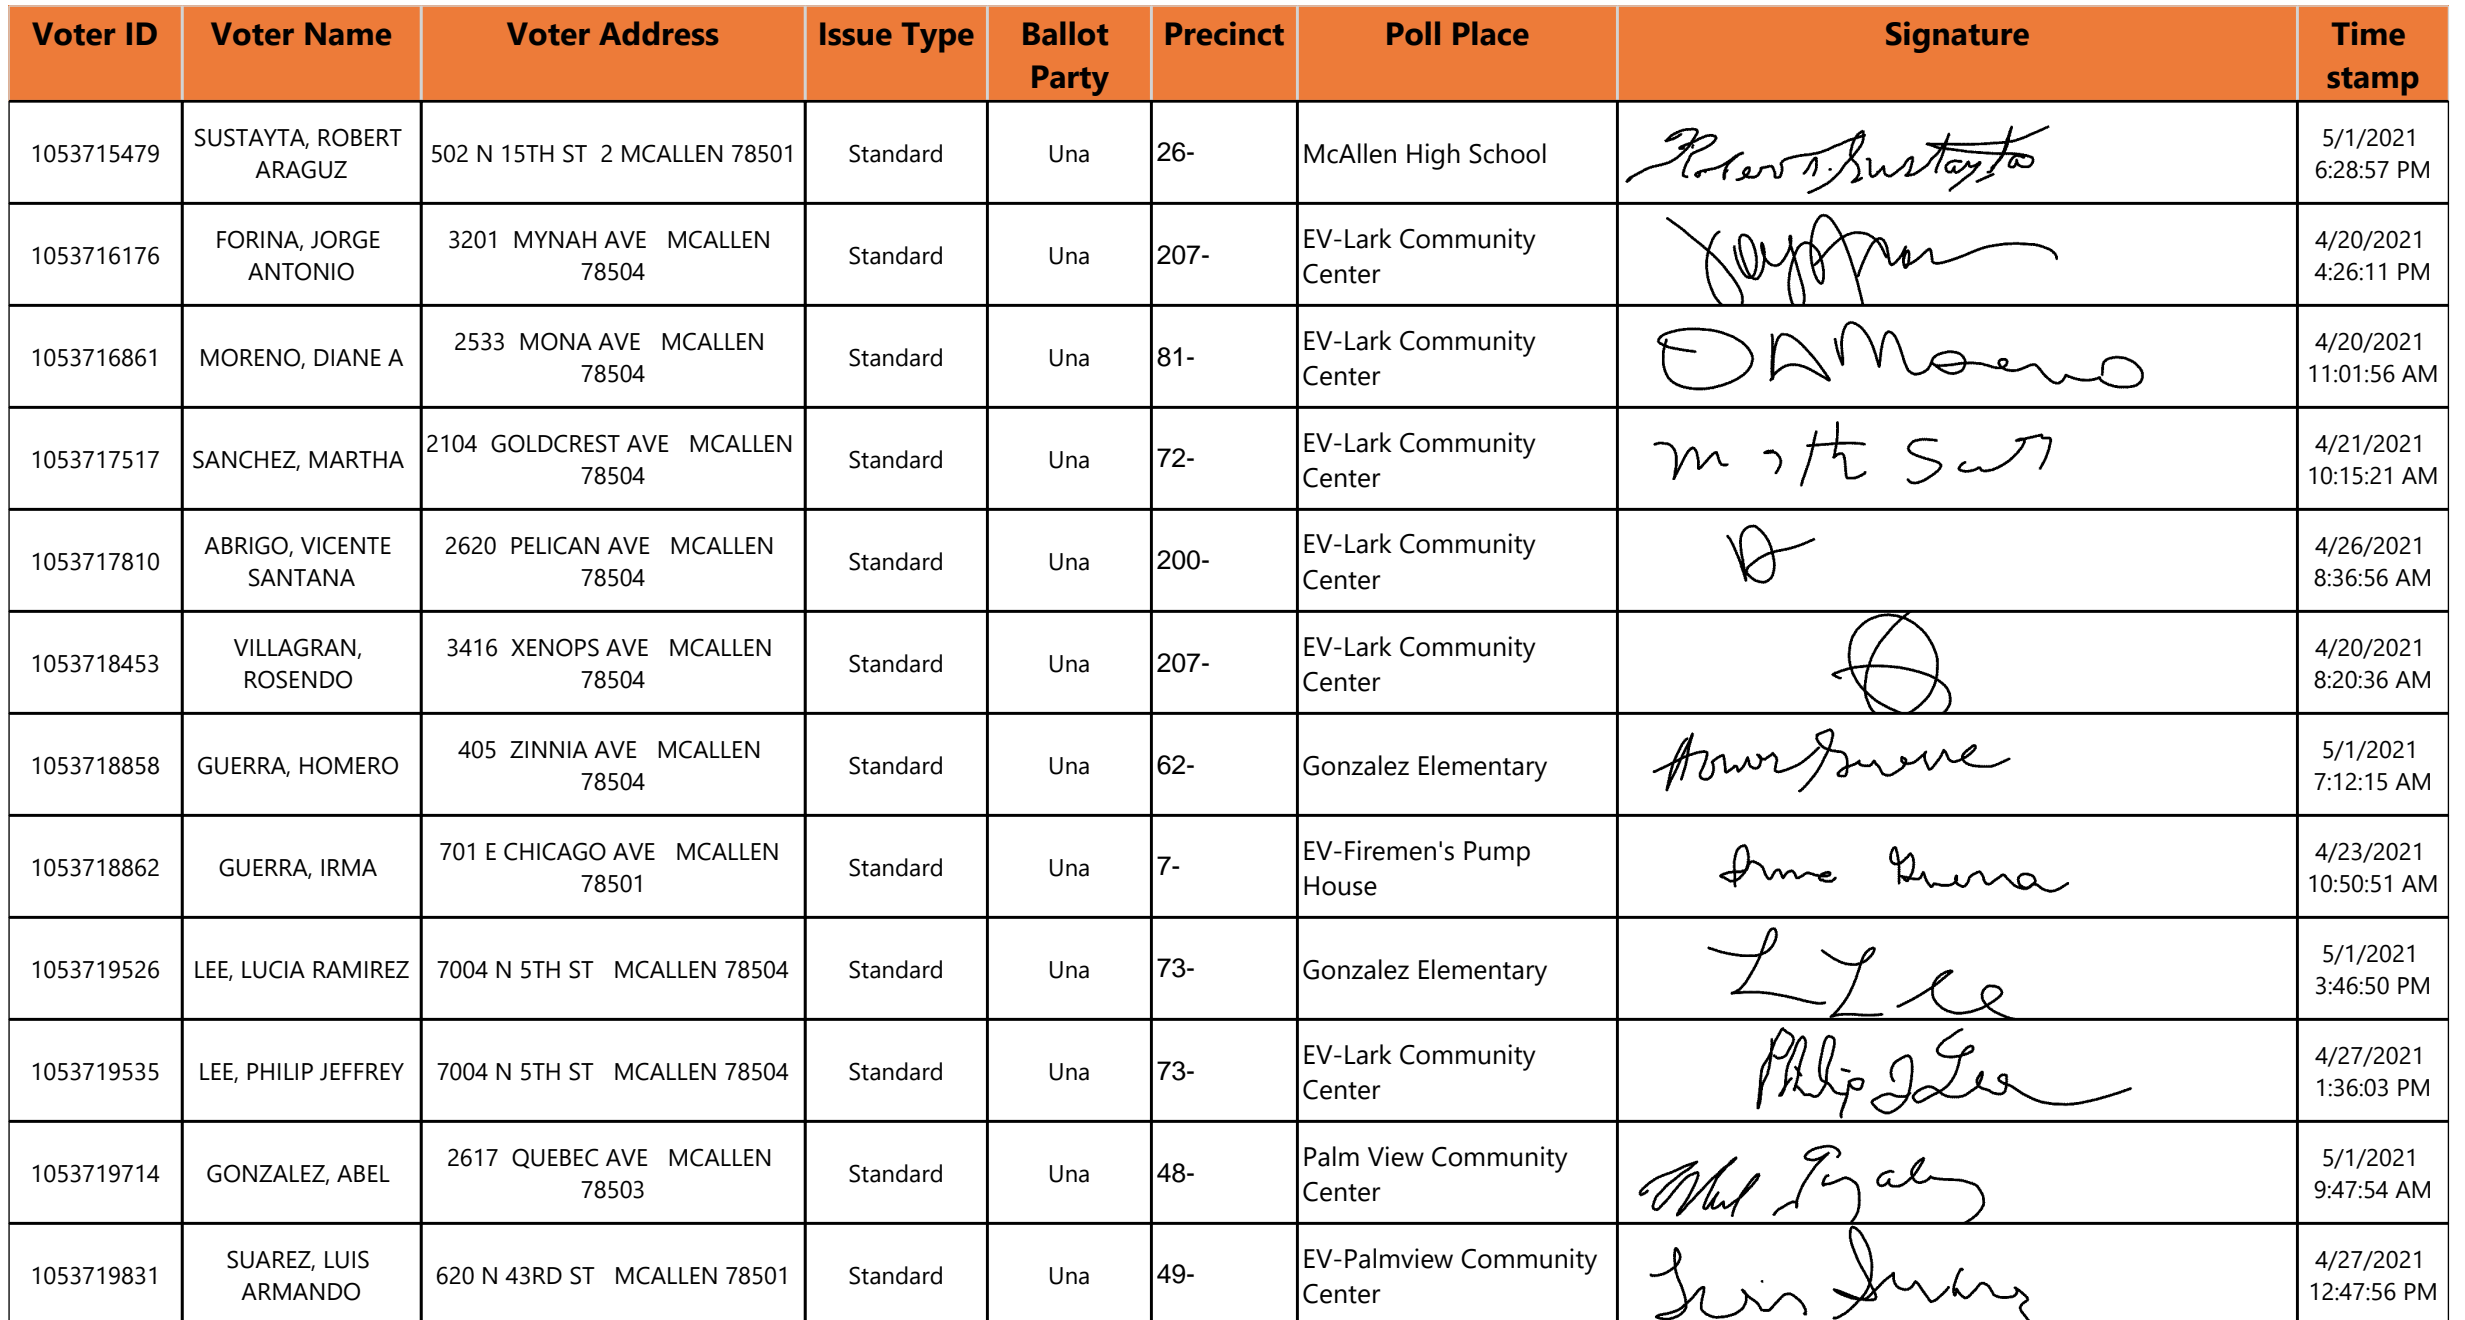 Voter ID Voter Name Voter Address Issue Type Ballot Party Precinct Poll Place Signature Time stamp
1053715479 SUSTAYTA, ROBERT ARAGUZ 502 N 15TH ST 2 MCALLEN 78501 Standard Una 26- McAllen High School 5/1/2021 6:28:57 PM
1053716176 FORINA, JORGE ANTONIO 3201 MYNAH AVE MCALLEN 78504 Standard Una 207- EV-Lark Community Center 4/20/2021 4:26:11 PM
1053716861 MORENO, DIANE A 2533 MONA AVE MCALLEN 78504 Standard Una 81- EV-Lark Community Center D A Moreno 4/20/2021 11:01:56 AM
1053717517 SANCHEZ, MARTHA 2104 GOLDCREST AVE MCALLEN 78504 Standard Una 72- EV-Lark Community Center 4/21/2021 10:15:21 AM
1053717810 ABRIGO, VICENTE SANTANA 2620 PELICAN AVE MCALLEN 78504 Standard Una 200- EV-Lark Community Center 4/26/2021 8:36:56 AM
1053718453 VILLAGRAN, ROSENDO 3416 XENOPS AVE MCALLEN 78504 Standard Una 207- EV-Lark Community Center 4/20/2021 8:20:36 AM
1053718858 GUERRA, HOMERO 405 ZINNIA AVE MCALLEN 78504 Standard Una 62- Gonzalez Elementary 5/1/2021 7:12:15 AM
1053718862 GUERRA, IRMA 701 E CHICAGO AVE MCALLEN 78501 Standard Una 7- EV-Firemen's Pump House Irma Guerra 4/23/2021 10:50:51 AM
1053719526 LEE, LUCIA RAMIREZ 7004 N 5TH ST MCALLEN 78504 Standard Una 73- Gonzalez Elementary L Lee 5/1/2021 3:46:50 PM
1053719535 LEE, PHILIP JEFFREY 7004 N 5TH ST MCALLEN 78504 Standard Una 73- EV-Lark Community Center Philip J Lee 4/27/2021 1:36:03 PM
1053719714 GONZALEZ, ABEL 2617 QUEBEC AVE MCALLEN 78503 Standard Una 48- Palm View Community Center 5/1/2021 9:47:54 AM
1053719831 SUAREZ, LUIS ARMANDO 620 N 43RD ST MCALLEN 78501 Standard Una 49- EV-Palmview Community Center Luis Suarez 4/27/2021 12:47:56 PM